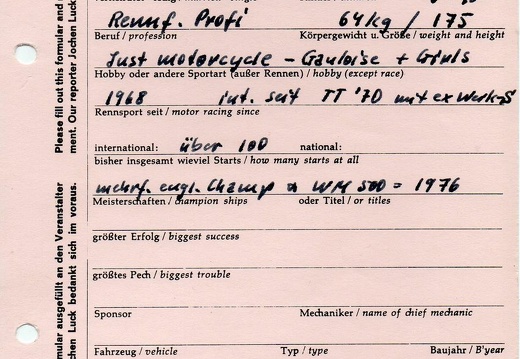 Rennf. Profi 64kg / 175
Beruf / profession Körpergewicht u. Größe / weight and height
Just motorcycle - Gauloise + Girls
Hobby oder andere Sportart (außer Rennen) / hobby (except race)
1968 int. seit TT '70 mit ex Werk-S
Rennsport seit / motor racing since
international: über 100 national:
bisher insgesamt wieviel Starts / how many starts at all
mehrf. engl. Champ WM 500 = 1976
Meisterschaften / champion ships oder Titel / or titles
größter Erfolg / biggest success
größtes Pech / biggest trouble
Sponsor Mechaniker / name of chief mechanic
Fahrzeug / vehicle Typ / type Baujahr / B'year
Please fill out this formular and
ment. Our reporter Jochen Luck
mular ausgefüllt an den Veranstalter
chen Luck bedankt sich im voraus.